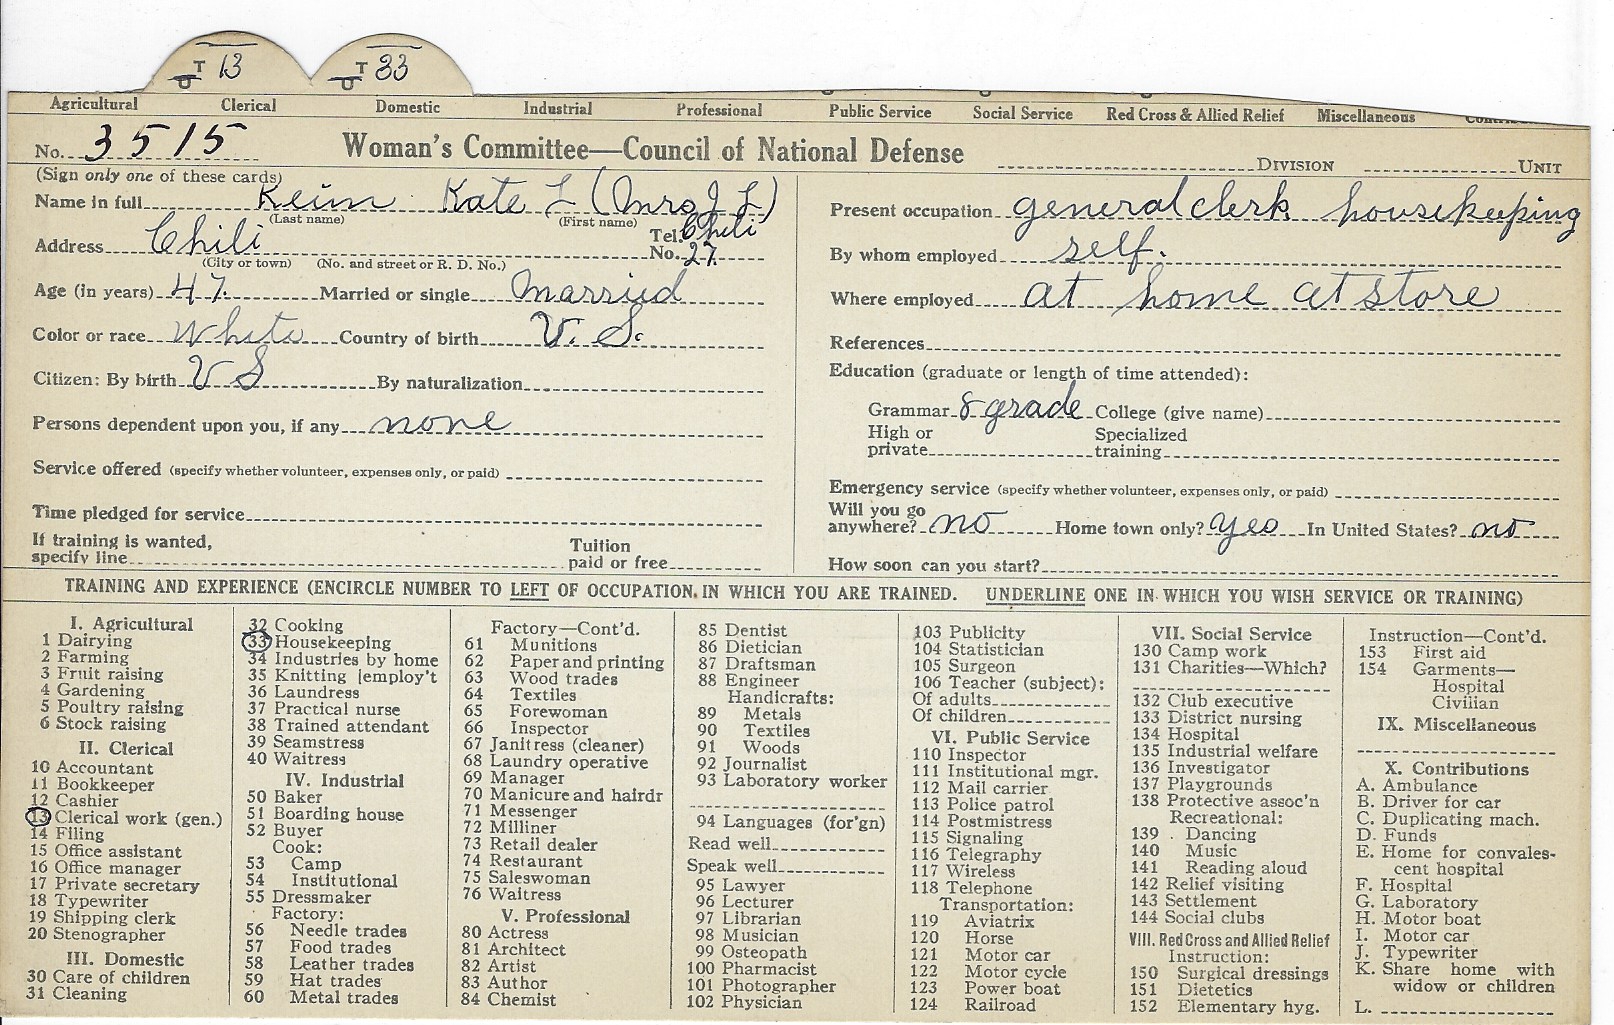 T 13 T 33
U U
Agricultural Clerical Domestic Industrial Professional Public Service Social Service Red Cross & Allied Relief Miscellaneous
No. 3515 Woman's Committee—Council of National Defense DIVISION UNIT
(Sign only one of these cards)
Name in full Keim Kate L (Mrs J L)
(Last name) (First name)
Address Chili Tel. No. Chili 27.
(City or town) (No. and street or R. D. No.)
Age (in years) 47. Married or single Married
Color or race White Country of birth U. S.
Citizen: By birth U S By naturalization
Persons dependent upon you, if any none
Service offered (specify whether volunteer, expenses only, or paid)
Time pledged for service
If training is wanted, specify line Tuition paid or free
Present occupation general clerk housekeeping
By whom employed self.
Where employed at home at store
References
Education (graduate or length of time attended):
Grammar 8 grade College (give name)
High or private Specialized training
Emergency service (specify whether volunteer, expenses only, or paid)
Will you go anywhere? no Home town only? yes In United States? no
How soon can you start?
TRAINING AND EXPERIENCE (ENCIRCLE NUMBER TO LEFT OF OCCUPATION IN WHICH YOU ARE TRAINED. UNDERLINE ONE IN WHICH YOU WISH SERVICE OR TRAINING)
I. Agricultural
1 Dairying
2 Farming
3 Fruit raising
4 Gardening
5 Poultry raising
6 Stock raising
II. Clerical
10 Accountant
11 Bookkeeper
12 Cashier
13 Clerical work (gen.)
14 Filing
15 Office assistant
16 Office manager
17 Private secretary
18 Typewriter
19 Shipping clerk
20 Stenographer
III. Domestic
30 Care of children
31 Cleaning
32 Cooking
33 Housekeeping
34 Industries by home
35 Knitting [employ't
36 Laundress
37 Practical nurse
38 Trained attendant
39 Seamstress
40 Waitress
IV. Industrial
50 Baker
51 Boarding house
52 Buyer
Cook:
53 Camp
54 Institutional
55 Dressmaker
Factory:
56 Needle trades
57 Food trades
58 Leather trades
59 Hat trades
60 Metal trades
Factory—Cont'd.
61 Munitions
62 Paper and printing
63 Wood trades
64 Textiles
65 Forewoman
66 Inspector
67 Janitress (cleaner)
68 Laundry operative
69 Manager
70 Manicure and hairdr
71 Messenger
72 Milliner
73 Retail dealer
74 Restaurant
75 Saleswoman
76 Waitress
V. Professional
80 Actress
81 Architect
82 Artist
83 Author
84 Chemist
85 Dentist
86 Dietician
87 Draftsman
88 Engineer
Handicrafts:
89 Metals
90 Textiles
91 Woods
92 Journalist
93 Laboratory worker
94 Languages (for'gn)
Read well
Speak well
95 Lawyer
96 Lecturer
97 Librarian
98 Musician
99 Osteopath
100 Pharmacist
101 Photographer
102 Physician
103 Publicity
104 Statistician
105 Surgeon
106 Teacher (subject):
Of adults
Of children
VI. Public Service
110 Inspector
111 Institutional mgr.
112 Mail carrier
113 Police patrol
114 Postmistress
115 Signaling
116 Telegraphy
117 Wireless
118 Telephone
Transportation:
119 Aviatrix
120 Horse
121 Motor car
122 Motor cycle
123 Power boat
124 Railroad
VII. Social Service
130 Camp work
131 Charities—Which?
132 Club executive
133 District nursing
134 Hospital
135 Industrial welfare
136 Investigator
137 Playgrounds
138 Protective assoc'n
Recreational:
139 Dancing
140 Music
141 Reading aloud
142 Relief visiting
143 Settlement
144 Social clubs
VIII. Red Cross and Allied Relief
Instruction:
150 Surgical dressings
151 Dietetics
152 Elementary hyg.
Instruction—Cont'd.
153 First aid
154 Garments—
Hospital
Civilian
IX. Miscellaneous
X. Contributions
A. Ambulance
B. Driver for car
C. Duplicating mach.
D. Funds
E. Home for convales-
cent hospital
F. Hospital
G. Laboratory
H. Motor boat
I. Motor car
J. Typewriter
K. Share home with
widow or children
L.